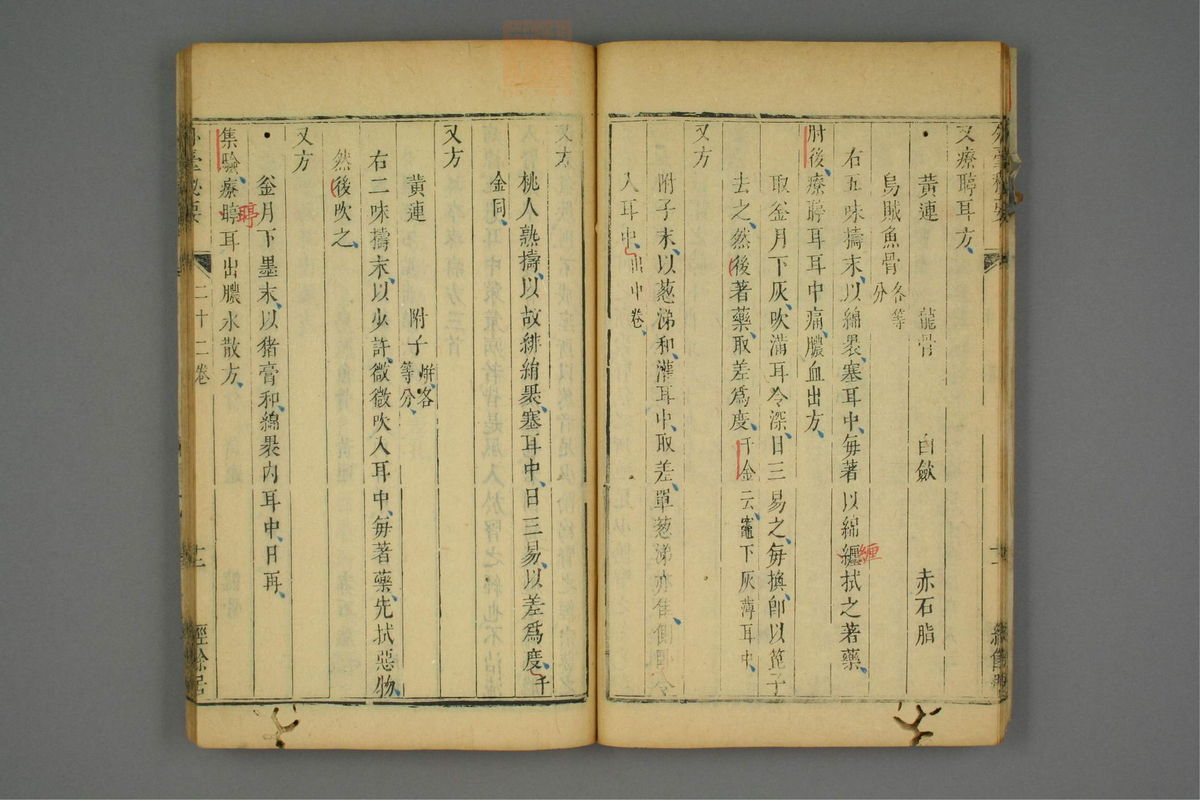 又療聤耳方
黃連 龍骨 白歛 赤石脂
烏賊魚骨各等分
右五味擣末以綿褁塞耳中每著以綿纏拭之著藥
纏
肘後療聤耳耳中痛膿血出方
取釡月下灰吹滿耳令深日三易之每換卽以篦子
去之然後著藥取差爲度千金云竈下灰薄耳中
又方
附子末以葱涕和灌耳中取差單葱涕亦佳側
入耳中出中卷
又方
桃人熟擣以故緋絹褁塞耳中日三易以差爲度千
金同
又方
黃連 附子各等分
右二味擣末以少許微微吹入耳中每著藥先拭惡物
然後吹之
又方
釡月下墨末以猪膏和綿褁內耳中日再
集驗療聤耳出膿水散方
聤
二十二卷
十二
經餘居